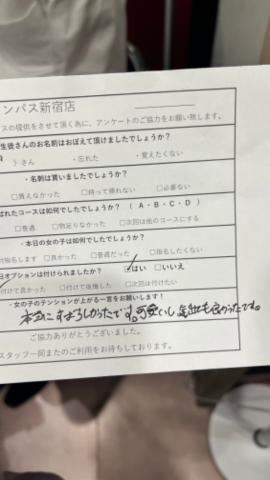 ンパス新宿店
スの提供をさせて頂く為に、アンケートのご協力をお願い致します。
生徒さんのお名前はおぼえて頂けましたでしょうか?
）さん ・忘れた ・覚えたくない
・名刺は貰いましたでしょうか?
□貰えなかった □持って帰れない □必要ない
ばれたコースは如何でしたでしょうか? （ A・B・C・D ）
□普通 □物足りなかった □次回は他のコースにする
・本日の女の子は如何でしたでしょうか?
指名します □良かった □普通だった □指名したくない
日オプションは付けられましたか? ☑はい □いいえ
付けて良かった □付けて後悔した □次回は付けたい
・女の子のテンションが上がる一言をお願いします!
本当にすばらしかったです。可愛いし も良かったです。
ご協力ありがとうございました。
スタッフ一同またのご利用をお待ちしております。